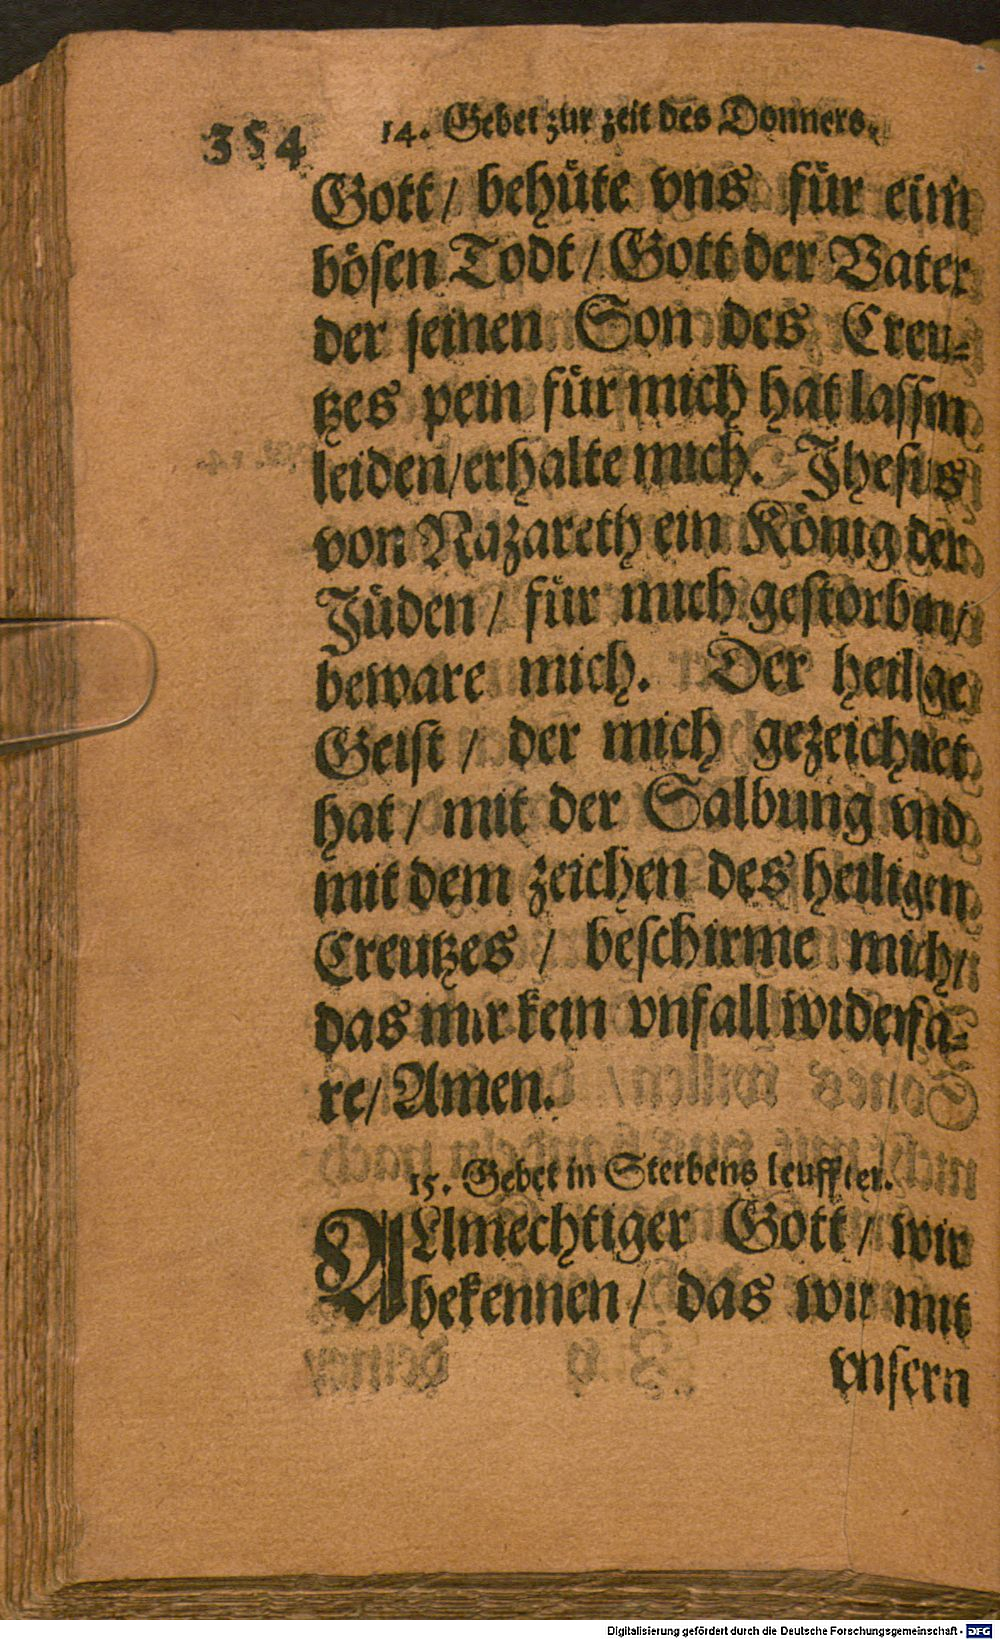 354
14. Gebet zur zeit des Donners.
Gott / behüte vns für eim
bösen Todt / Gott der Vater
der seinen Son des Creu⸗
tzes pein für mich hat lassen
leiden / erhalte mich. Jhesus
von Nazareth ein König der
Jüden / für mich gestorben /
beware mich. Der heilige
Geist / der mich gezeichnet
hat / mit der Salbung vnd
mit dem zeichen des heiligen
Creutzes / beschirme mich /
das mir kein vnfall widerfa⸗
re / Amen.
15. Gebet in Sterbens leufften.
ALlmechtiger Gott / wir
bekennen / das wir mit
vnsern
Digitalisierung gefördert durch die Deutsche Forschungsgemeinschaft - DFG